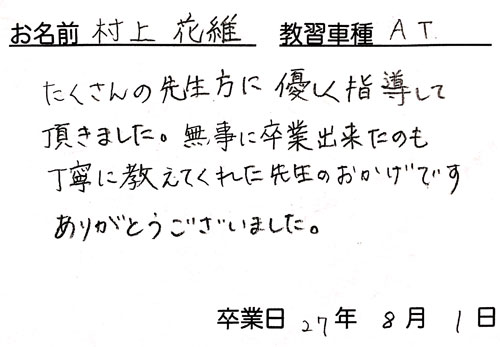 お名前 村上 花維 教習車種 AT
たくさんの先生方に優しく指導して
頂きました。無事に卒業出来たのも
丁寧に教えてくれた先生のおかげです
ありがとうございました。
卒業日 27年 8月 1日